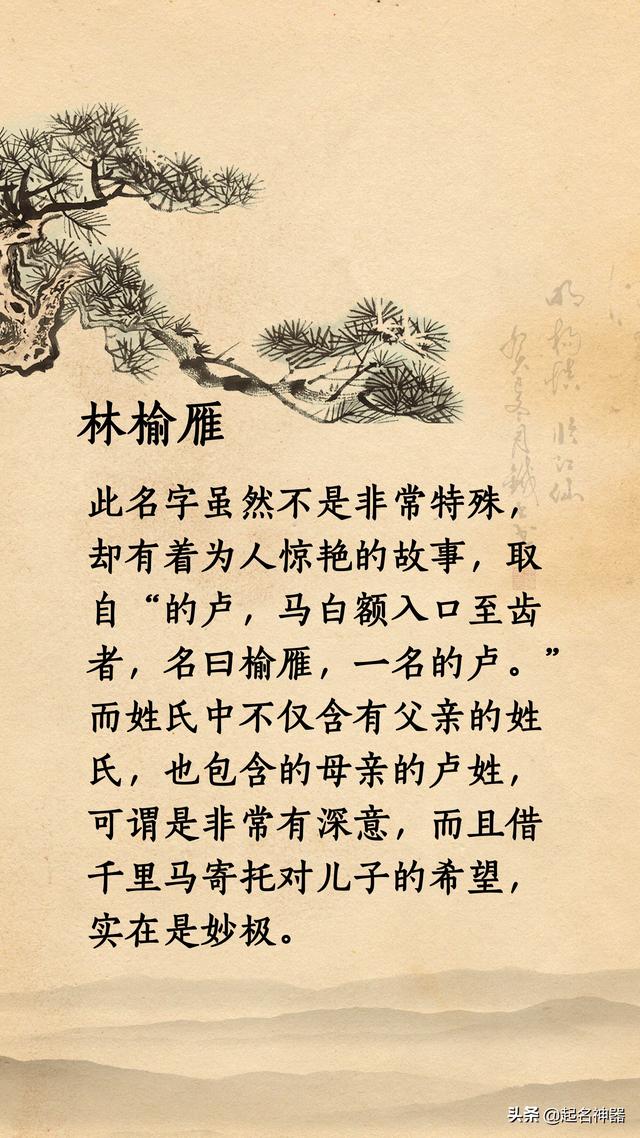 林榆雁
此名字虽然不是非常特殊，
却有着为人惊艳的故事，取
自“的卢，马白额入口至齿
者，名曰榆雁，一名的卢。”
而姓氏中不仅含有父亲的姓
氏，也包含的母亲的卢姓，
可谓是非常有深意，而且借
千里马寄托对儿子的希望，
实在是妙极。
明杨慎 临江仙
头条 @起名神器